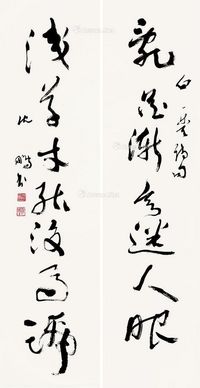 乱花渐欲迷人眼
白乐天诗句
浅草才能没马蹄
沈鹏书